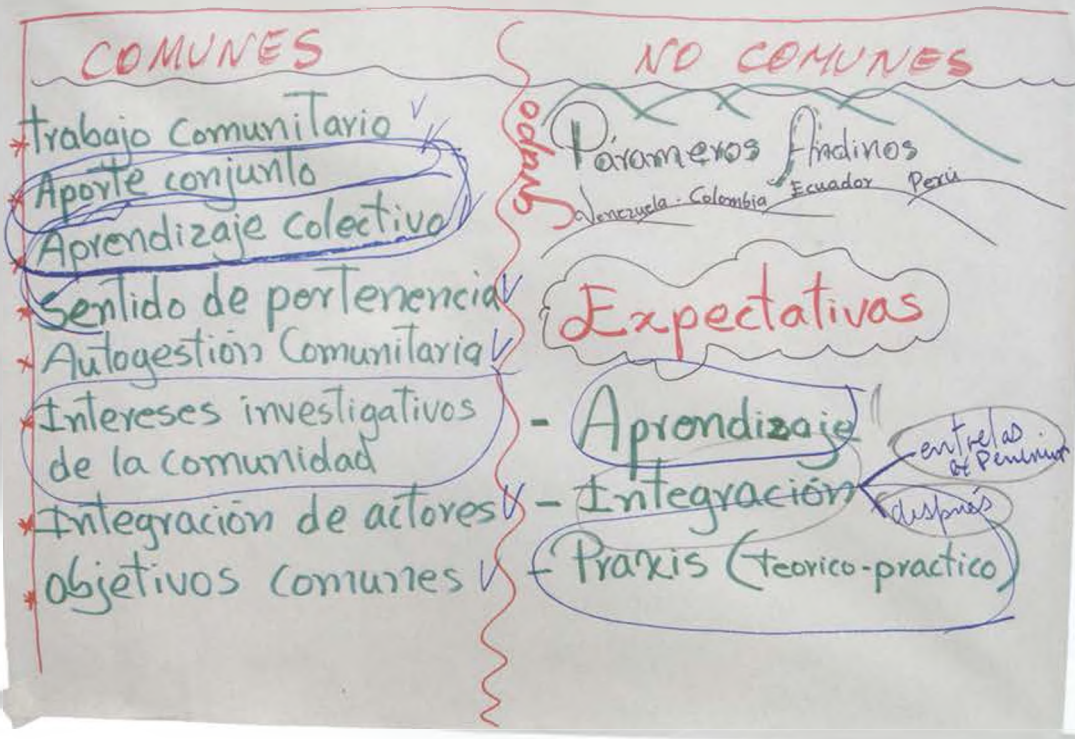 COMUNES
trabajo comunitario
Aporte conjunto
Aprendizaje colectivo
Sentido de pertenencia
Autogestión Comunitaria
Intereses investigativos
de la comunidad
Integración de actores
objetivos comunes
grupo
NO COMUNES
Párameros Andinos
Venezuela - Colombia Ecuador Perú
Expectativas
- Aprendizaje
- Integración
entre las
después
- Praxis (teorico-practico)